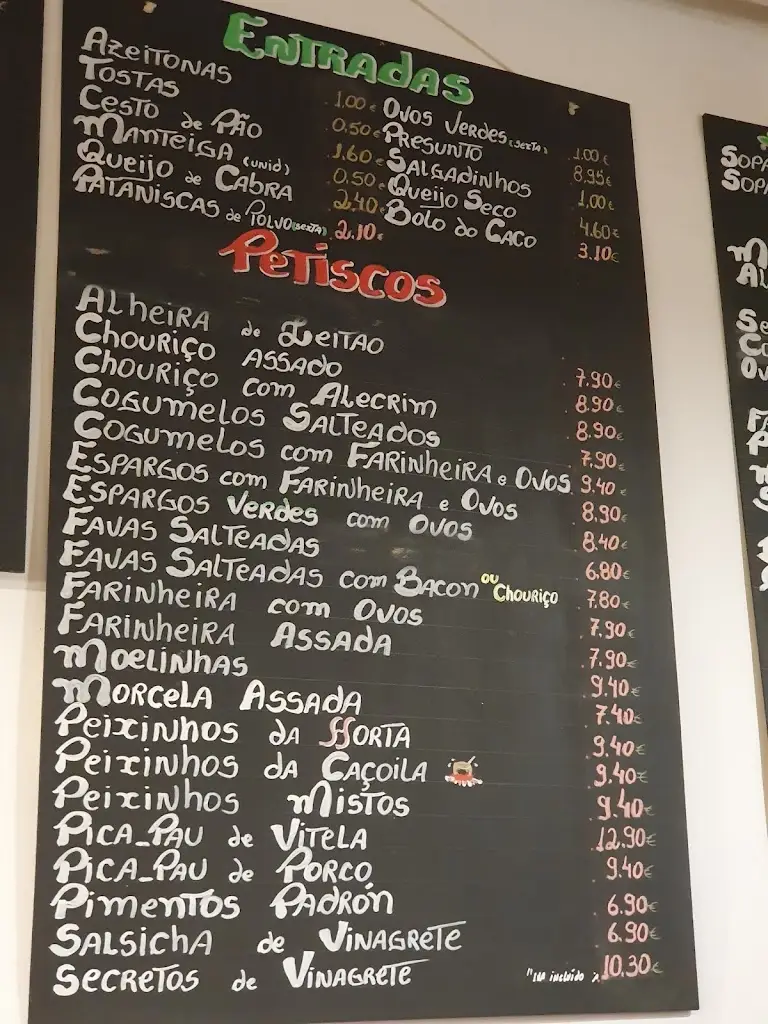 ENTRADAS
AZEITONAS 1.00€
TOSTAS 0.50€
CESTO de PÃO 1.60€
MANTEIGA (UNID) 0.50€
QUEIJO de CABRA 2.40€
PATANISCAS de POLVO (SEXTA) 2.10€
OVOS VERDES (SEXTA) 1.00€
PRESUNTO 8.95€
SALGADINHOS 1.00€
QUEIJO SECO 4.60€
BOLO do CACO 3.10€
PETISCOS
ALHEIRA de LEITAO 7.90€
CHOURIÇO ASSADO 8.90€
CHOURIÇO com ALECRIM 8.90€
COGUMELOS SALTEADOS 7.90€
COGUMELOS com FARINHEIRA e OVOS 9.40€
ESPARGOS com FARINHEIRA e OVOS 8.90€
ESPARGOS VERDES com OVOS 8.40€
FAVAS SALTEADAS 6.80€
FAVAS SALTEADAS com BACON ou CHOURIÇO 7.80€
FARINHEIRA com OVOS 7.90€
FARINHEIRA ASSADA 7.90€
MOELINHAS 9.40€
MORCELA ASSADA 7.40€
PEIXINHOS DA HORTA 9.40€
PEIXINHOS DA CAÇOILA 9.40€
PEIXINHOS MISTOS 9.40€
PICA-PAU de VITELA 12.90€
PICA-PAU de PORCO 9.40€
PIMENTOS PADRÓN 6.90€
SALSICHA de VINAGRETE 6.90€
SECRETOS de VINAGRETE 10.30€
"IVA incluido"
SOPA
SOPA